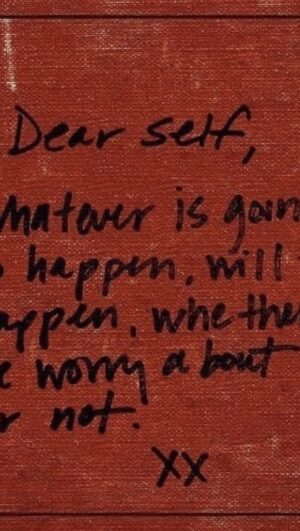 Dear self,
whatever is goin
o happen, will
appen, whethe
e worry about
r not.
xx